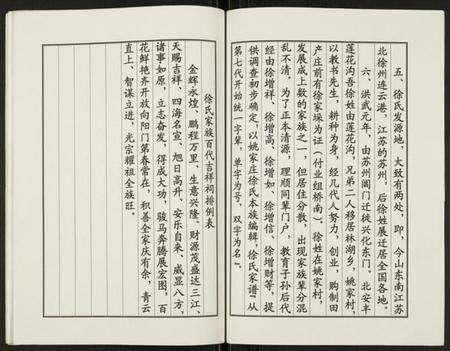 五、徐氏发源地，大致有两处，即，今山东南江苏
北徐州连云港，江苏的苏州，后徐姓展迁居全国各地。
六、洪武元年，由苏州阊门迁徙兴化东门、北安丰
莲花沟吾徐姓由莲花沟，兄弟二人移居林湖乡，姚家村，
以教书先生，耕种为身，经几代人努力，创业，购制田
产庄前有徐家垛为证（付业组桥南）、徐姓在姚家村，
发展成上数的家族之一，但居住分散，出现家族辈分混
乱不清，为了正本清源，理顺同辈门户，教育子孙后代
经由徐增祥、徐增高、徐增如、徐增信、徐增财等，提
供调查初步确定，以姚家庄徐氏本族编辑，徐氏家谱“从
第七代开始统一字辈，单字为号，双字为名”。
徐氏家族百代吉祥祠排例表
金辉永煌、鹏程万里、生意兴隆、财源茂盛达三江、
天赐吉祥、四海名宣、旭日高升、安乐自来、威显八方，
诸事如原，立志奋发、得成大功、骏马奔腾展宏图，百
花鲜艳齐开放向阳门第春常在，积善全家庆有余，青云
直上、智谋立进，光宗耀祖全族旺。